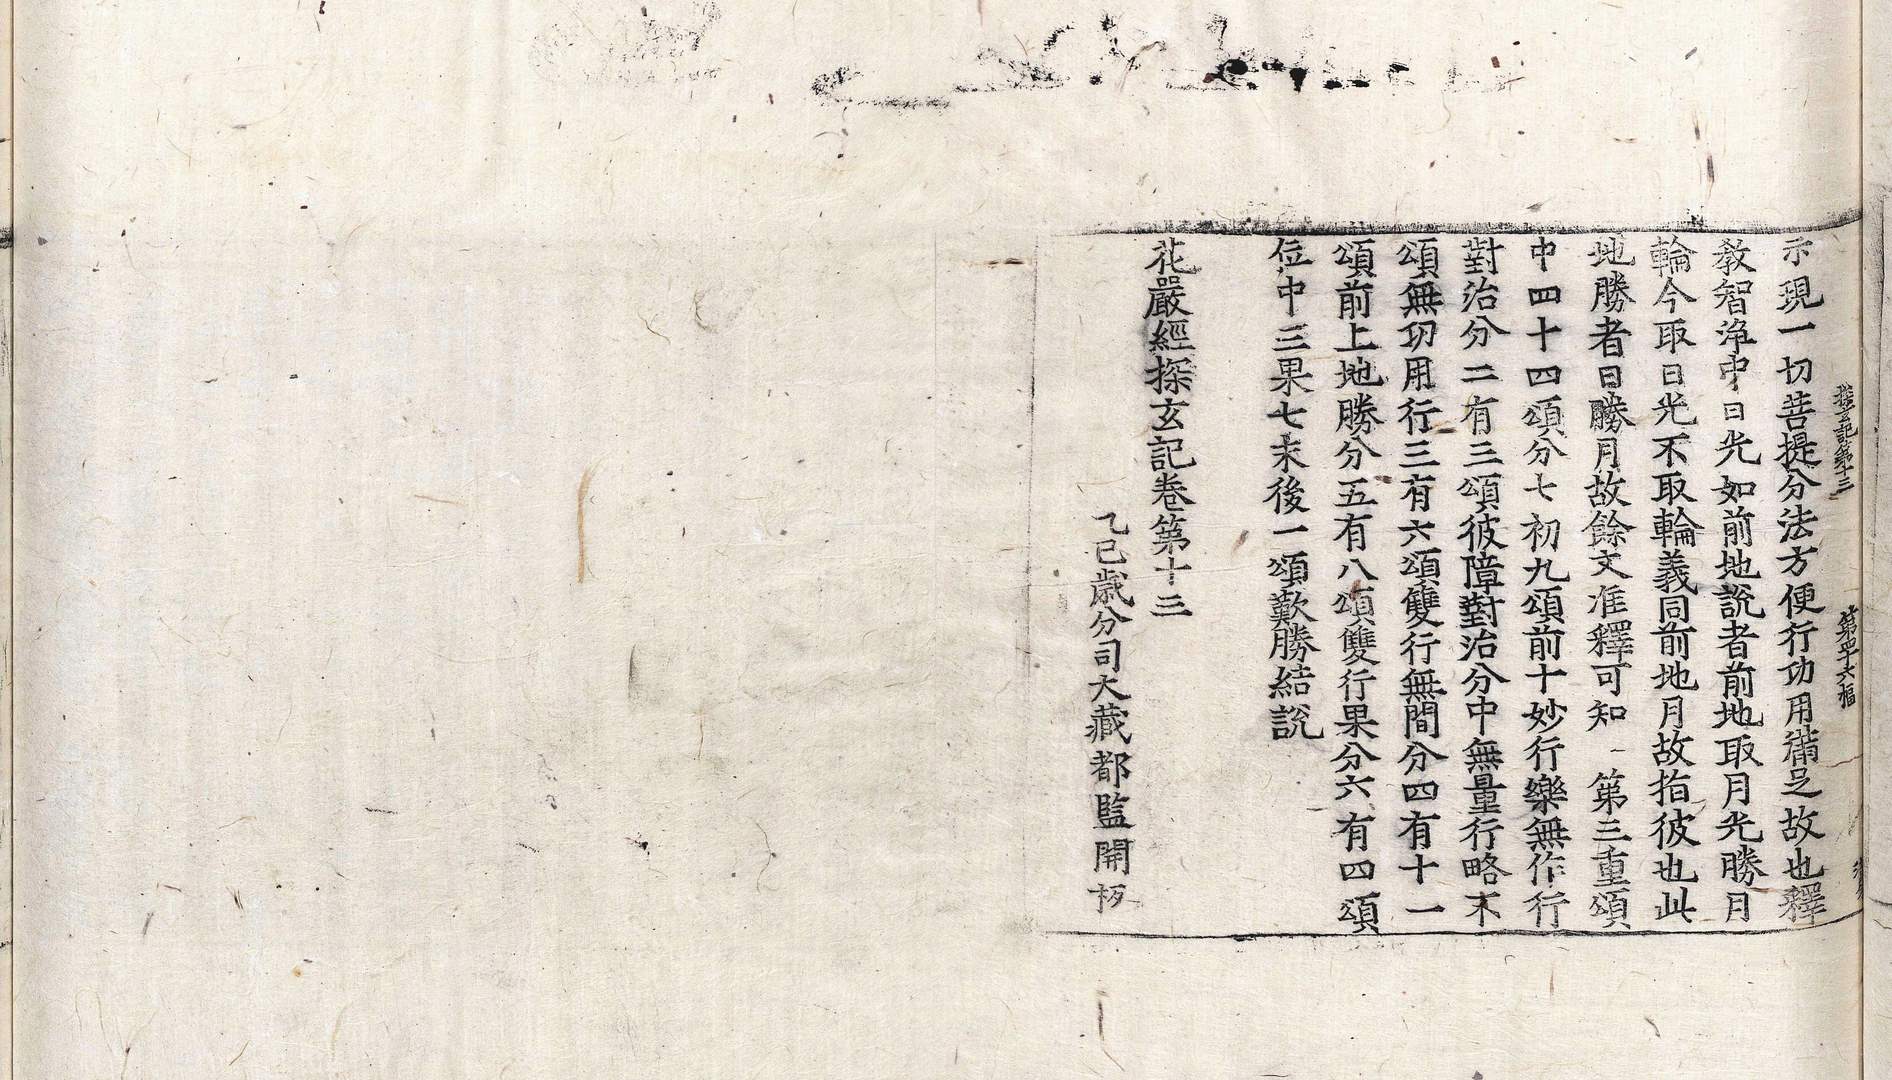 探玄記第十三 第四十六幅
示現一切菩提分法方便行功用滿足故也釋
教智淨中日光如前地說者前地取月光勝日
輪今取日光不取輪義同前地月故指彼也此
地勝者日勝月故餘文准釋可知 第三重頌
中四十四頌分七初九頌前十妙行樂無作行
對治分二有三頌彼障對治分中無量行略不
頌無功用行三有六頌雙行無間分四有十一
頌前上地勝分五有八頌雙行果分六有四頌
位中三果七末後一頌歎勝結說
花嚴經探玄記卷第十三
乙巳歲分司大藏都監開板